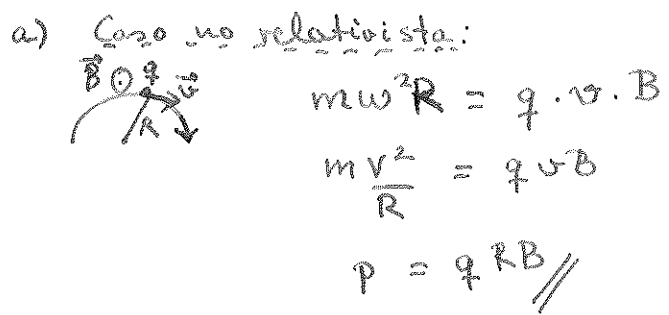 a) Caso no relativista:
B⃗ ⊙ q v⃗
R
mω²R = q . v . B
m v²/R = q v B
p = q R B //